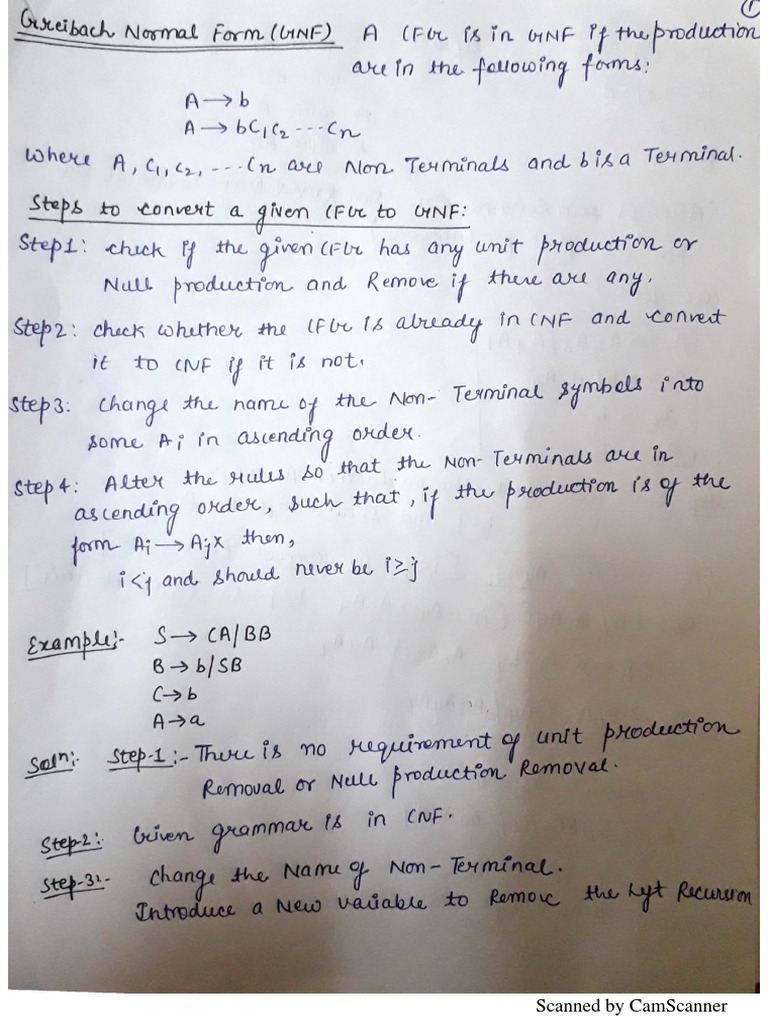 ①
Greibach Normal Form (GNF) A CFG is in GNF if the production
are in the following forms:
A → b
A → bC₁C₂ ---- Cn
where A, C₁, C₂, ---- Cn are Non Terminals and b is a Terminal.
Steps to convert a given CFG to GNF:
Step1: check if the given CFG has any unit production or
Null production and Remove if there are any.
Step2: check whether the CFG is already in CNF and convert
it to CNF if it is not.
Step3: change the name of the Non-Terminal symbols into
some Ai in ascending order.
Step4: Alter the rules so that the Non-Terminals are in
ascending order, such that, if the production is of the
form Ai → Ajx then,
i<j and should never be i≥j
Example:- S → CA/BB
B → b/SB
C → b
A → a
Soln:- Step-1:- There is no requirement of unit production
Removal or Null production Removal.
Step-2:- Given grammar is in CNF.
Step-3:- change the Name of Non-Terminal.
Introduce a New variable to Remove the Left Recursion
Scanned by CamScanner